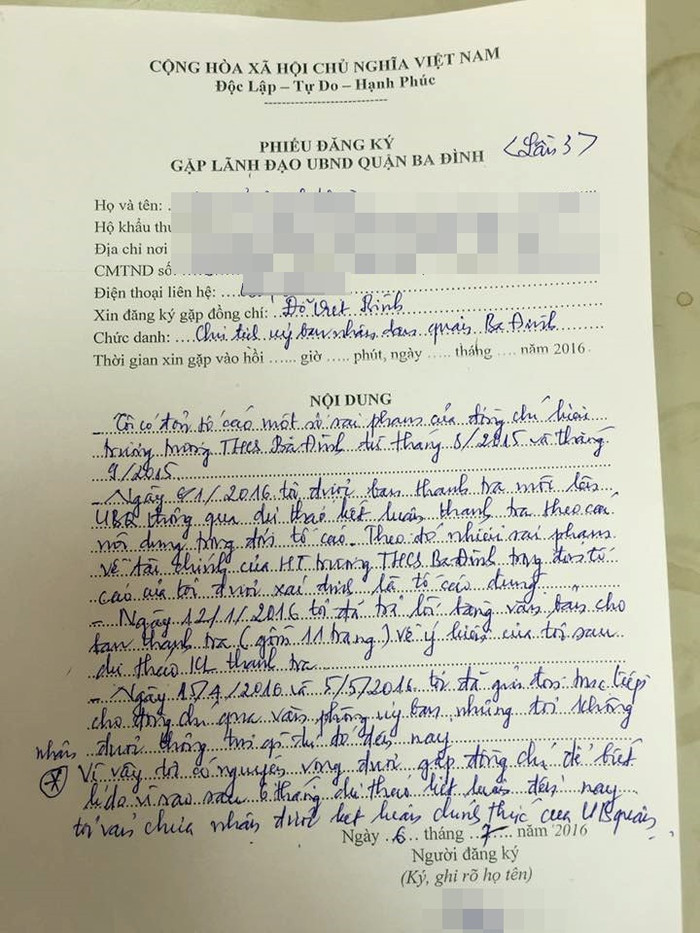 CỘNG HÒA XÃ HỘI CHỦ NGHĨA VIỆT NAM
Độc Lập – Tự Do – Hạnh Phúc
PHIẾU ĐĂNG KÝ
GẶP LÃNH ĐẠO UBND QUẬN BA ĐÌNH
<Lần 3>
Họ và tên:
Hộ khẩu thư
Địa chỉ nơi
CMTND số:
Điện thoại liên hệ:
Xin đăng ký gặp đồng chí: Đỗ Viết Bình
Chức danh: Chủ tịch uỷ ban nhân dân quận Ba Đình
Thời gian xin gặp vào hồi ...... giờ ..... phút, ngày ..... tháng ..... năm 2016
NỘI DUNG
Tôi có đơn tố cáo một số sai phạm của đồng chí hiệu
trưởng trường THCS Ba Đình từ tháng 8/2015 và tháng
9/2015
- Ngày 8/1/2016 tôi được ban thanh tra mời lên
UBQ thông qua dự thảo kết luận thanh tra theo các
nội dung trong đơn tố cáo. Theo đó nhiều sai phạm
về tài chính của HT trường THCS Ba Đình trong đơn tố
cáo của tôi được xác định là tố cáo đúng
- Ngày 12/1/2016 tôi đã trả lời bằng văn bản cho
ban thanh tra (gồm 11 trang) về ý kiến của tôi sau
dự thảo KL thanh tra
- Ngày 15/4/2016 và 5/5/2016 tôi đã gửi đơn trực tiếp
cho đồng chí qua văn phòng uỷ ban nhưng tôi không
nhận được thông tin gì từ đó đến nay
Vì vậy tôi có nguyện vọng được gặp đồng chí để biết
lí do vì sao sau 6 tháng dự thảo kết luận đến nay
tôi vẫn chưa nhận được kết luận chính thức của UB quận
Ngày 6 tháng 7 năm 2016
Người đăng ký
(Ký, ghi rõ họ tên)